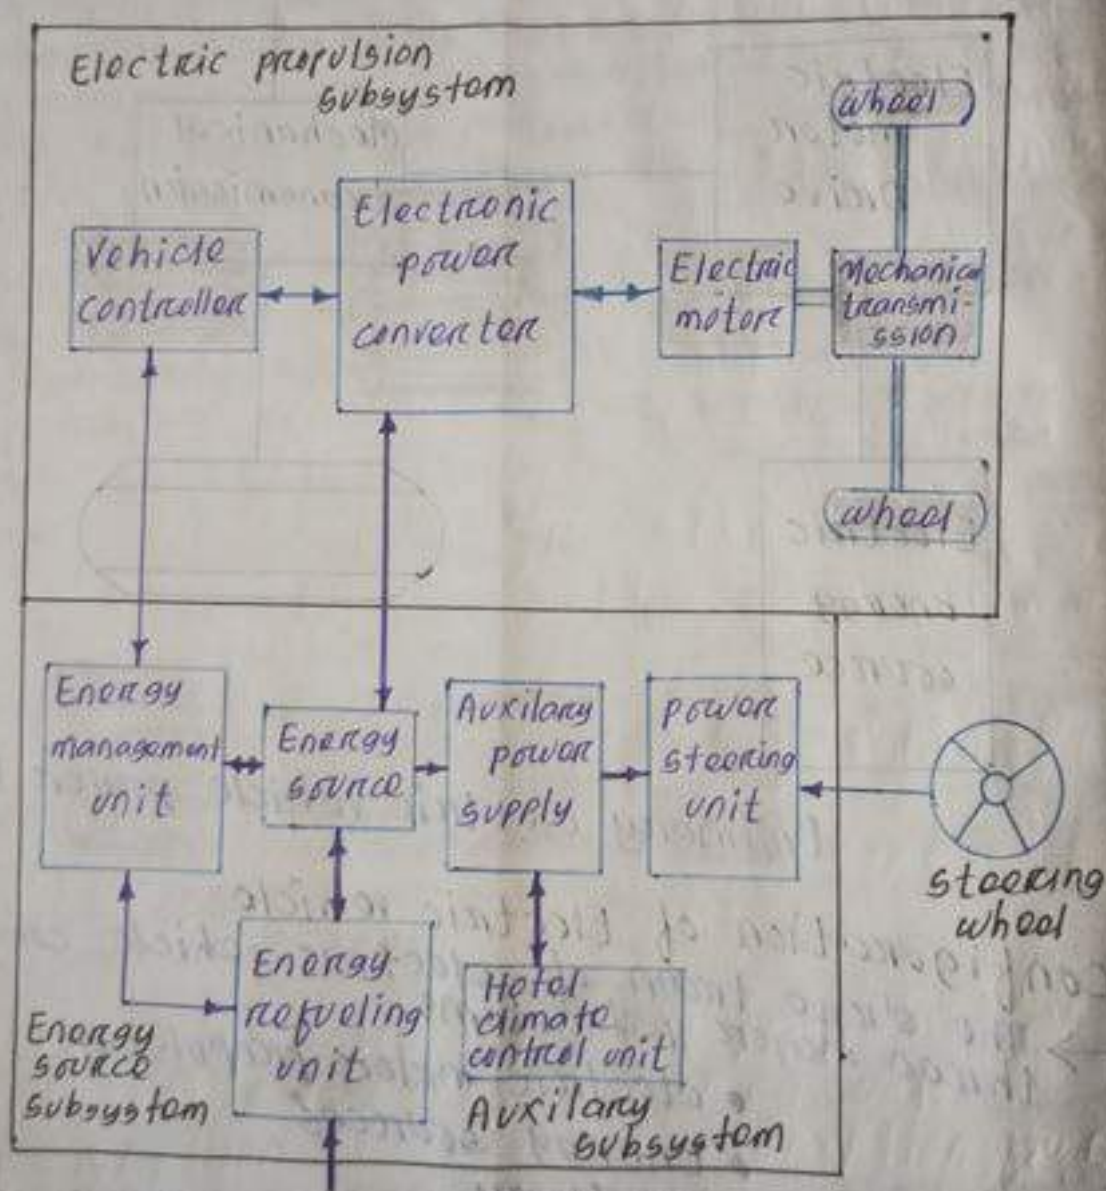 Electric propulsion
subsystem
wheel
Vehicle
controller
Electronic
power
converter
Electric
motor
Mechanical
transmi-
ssion
wheel
Energy
management
unit
Energy
source
Auxilary
power
supply
power
steering
unit
steering
wheel
Energy
refueling
unit
Hotel
climate
control unit
Energy
source
subsystem
Auxilary
subsystem